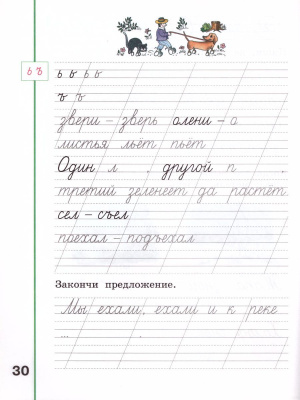 ь ъ
ь ъ ь ъ
ъ ъ
звери – зверь олени – о
листья льёт пьёт
Один л , другой п ,
третий зеленеет да растёт
сел – съел
поехал – подъехал
Закончи предложение.
Мы ехали, ехали и к реке
...
30